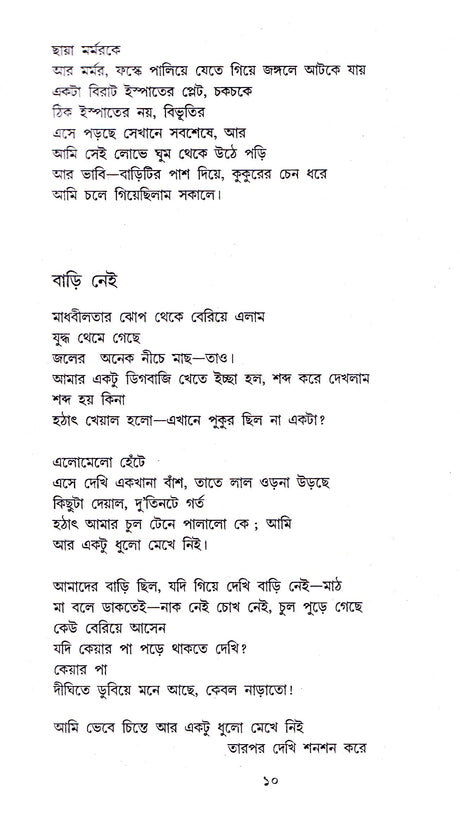 ছায়া মর্মরকে
আর মর্মর, ফস্কে পালিয়ে যেতে গিয়ে জঙ্গলে আটকে যায়
একটা বিরাট ইস্পাতের প্লেট, চকচকে
ঠিক ইস্পাতের নয়, বিভূতির
এসে পড়ছে সেখানে সবশেষে, আর
আমি সেই লোভে ঘুম থেকে উঠে পড়ি
আর ভাবি—বাড়িটির পাশ দিয়ে, কুকুরের চেন ধরে
আমি চলে গিয়েছিলাম সকালে।
বাড়ি নেই
মাধবীলতার ঝোপ থেকে বেরিয়ে এলাম
যুদ্ধ থেমে গেছে
জলের অনেক নীচে মাছ—তাও।
আমার একটু ডিগবাজি খেতে ইচ্ছা হল, শব্দ করে দেখলাম
শব্দ হয় কিনা
হঠাৎ খেয়াল হলো—এখানে পুকুর ছিল না একটা?
এলোমেলো হেঁটে
এসে দেখি একখানা বাঁশ, তাতে লাল ওড়না উড়ছে
কিছুটা দেয়াল, দু'তিনটে গর্ত
হঠাৎ আমার চুল টেনে পালালো কে ; আমি
আর একটু ধুলো মেখে নিই।
আমাদের বাড়ি ছিল, যদি গিয়ে দেখি বাড়ি নেই—মাঠ
মা বলে ডাকতেই—নাক নেই চোখ নেই, চুল পুড়ে গেছে
কেউ বেরিয়ে আসেন
যদি কেয়ার পা পড়ে থাকতে দেখি?
কেয়ার পা
দীঘিতে ডুবিয়ে মনে আছে, কেবল নাড়াতো!
আমি ভেবে চিন্তে আর একটু ধুলো মেখে নিই
তারপর দেখি শনশন করে
১০